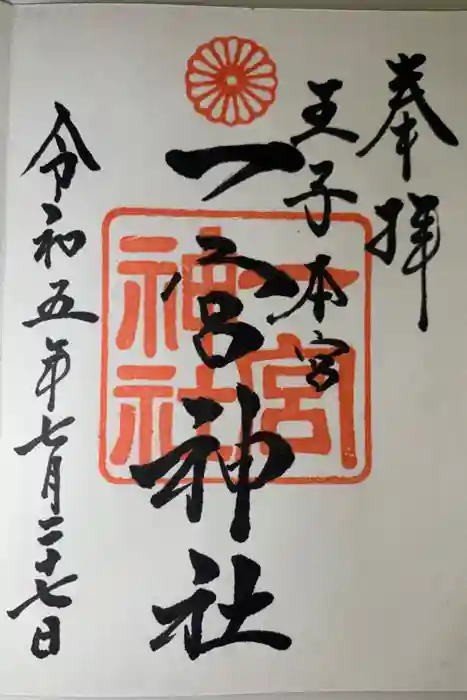 奉拝
王子本宮
一宮神社
令和五年七月二十七日
一宮
神社